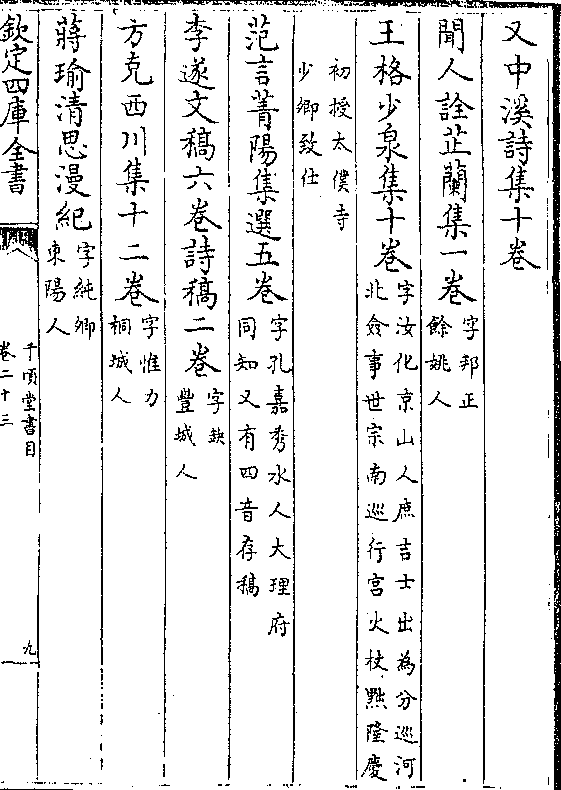 又中溪詩集十卷
聞人詮芷蘭集一卷
字邦正
餘姚人
王格少泉集十卷
字汝化京山人庶吉士出為分巡河
北僉事世宗南巡行宮火杖黜隆慶
初授太僕寺
少卿致仕
范言菁陽集選五卷
字孔嘉秀水人大理府
同知又有四音存稿
李遂文稿六卷詩稿二卷
字缺
豐城人
方克西川集十二卷
字惟力
桐城人
蔣瑜清思漫紀
字純卿
東陽人
欽定四庫全書
千頃堂書目
卷二十三
九